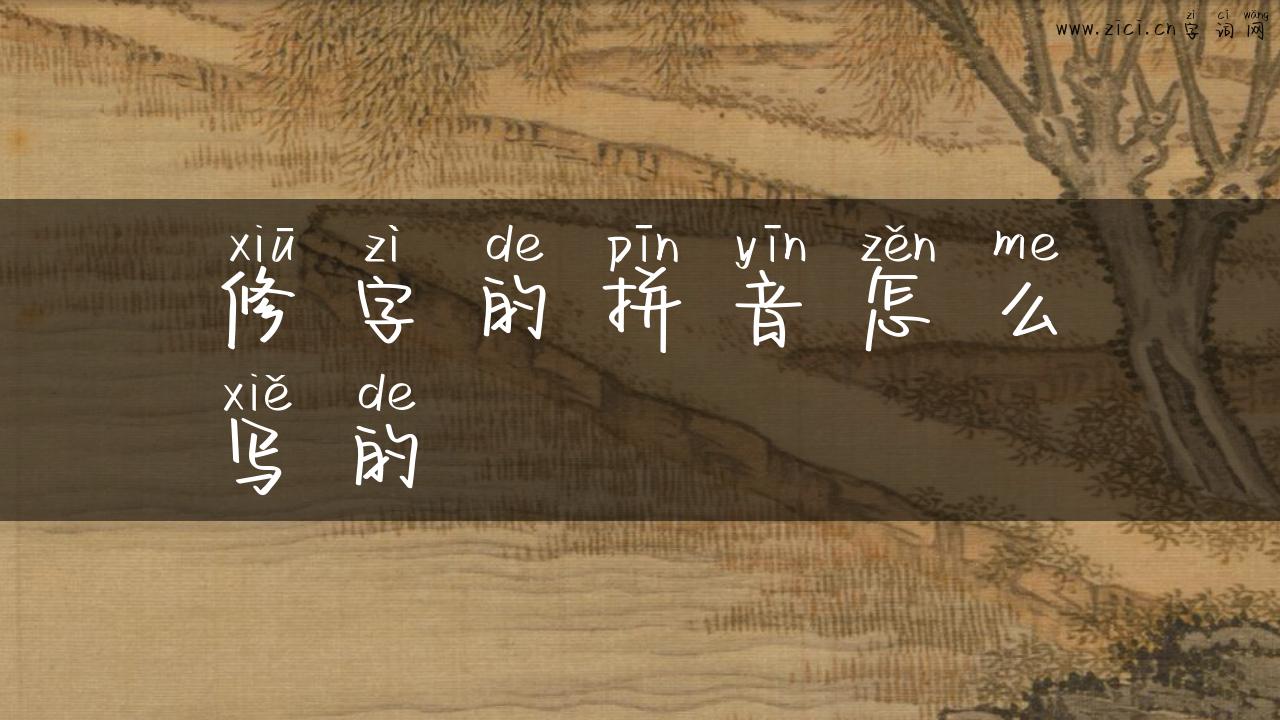 zì cí wǎng
www.zici.cn 字 词 网
xiū zì de pīn yīn zěn me
修 字 的 拼 音 怎 么
xiě de
写 的